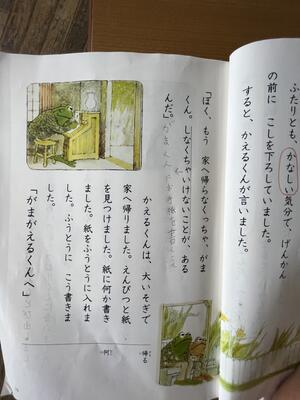 ふたりとも、かなしい気分で、げんかん
の前に こしを下ろしていました。
すると、かえるくんが言いました。
「ぼく、もう 家へ帰らなくっちゃ、がま
くん。しなくちゃいけないことが、ある
んだ。」
かえるくんは、大いそぎで
家へ帰りました。えんぴつと紙
を見つけました。紙に何か書き
ました。紙をふうとうに入れま
した。ふうとうに こう書きま
した。
「がまがえるくんへ」
帰る
何